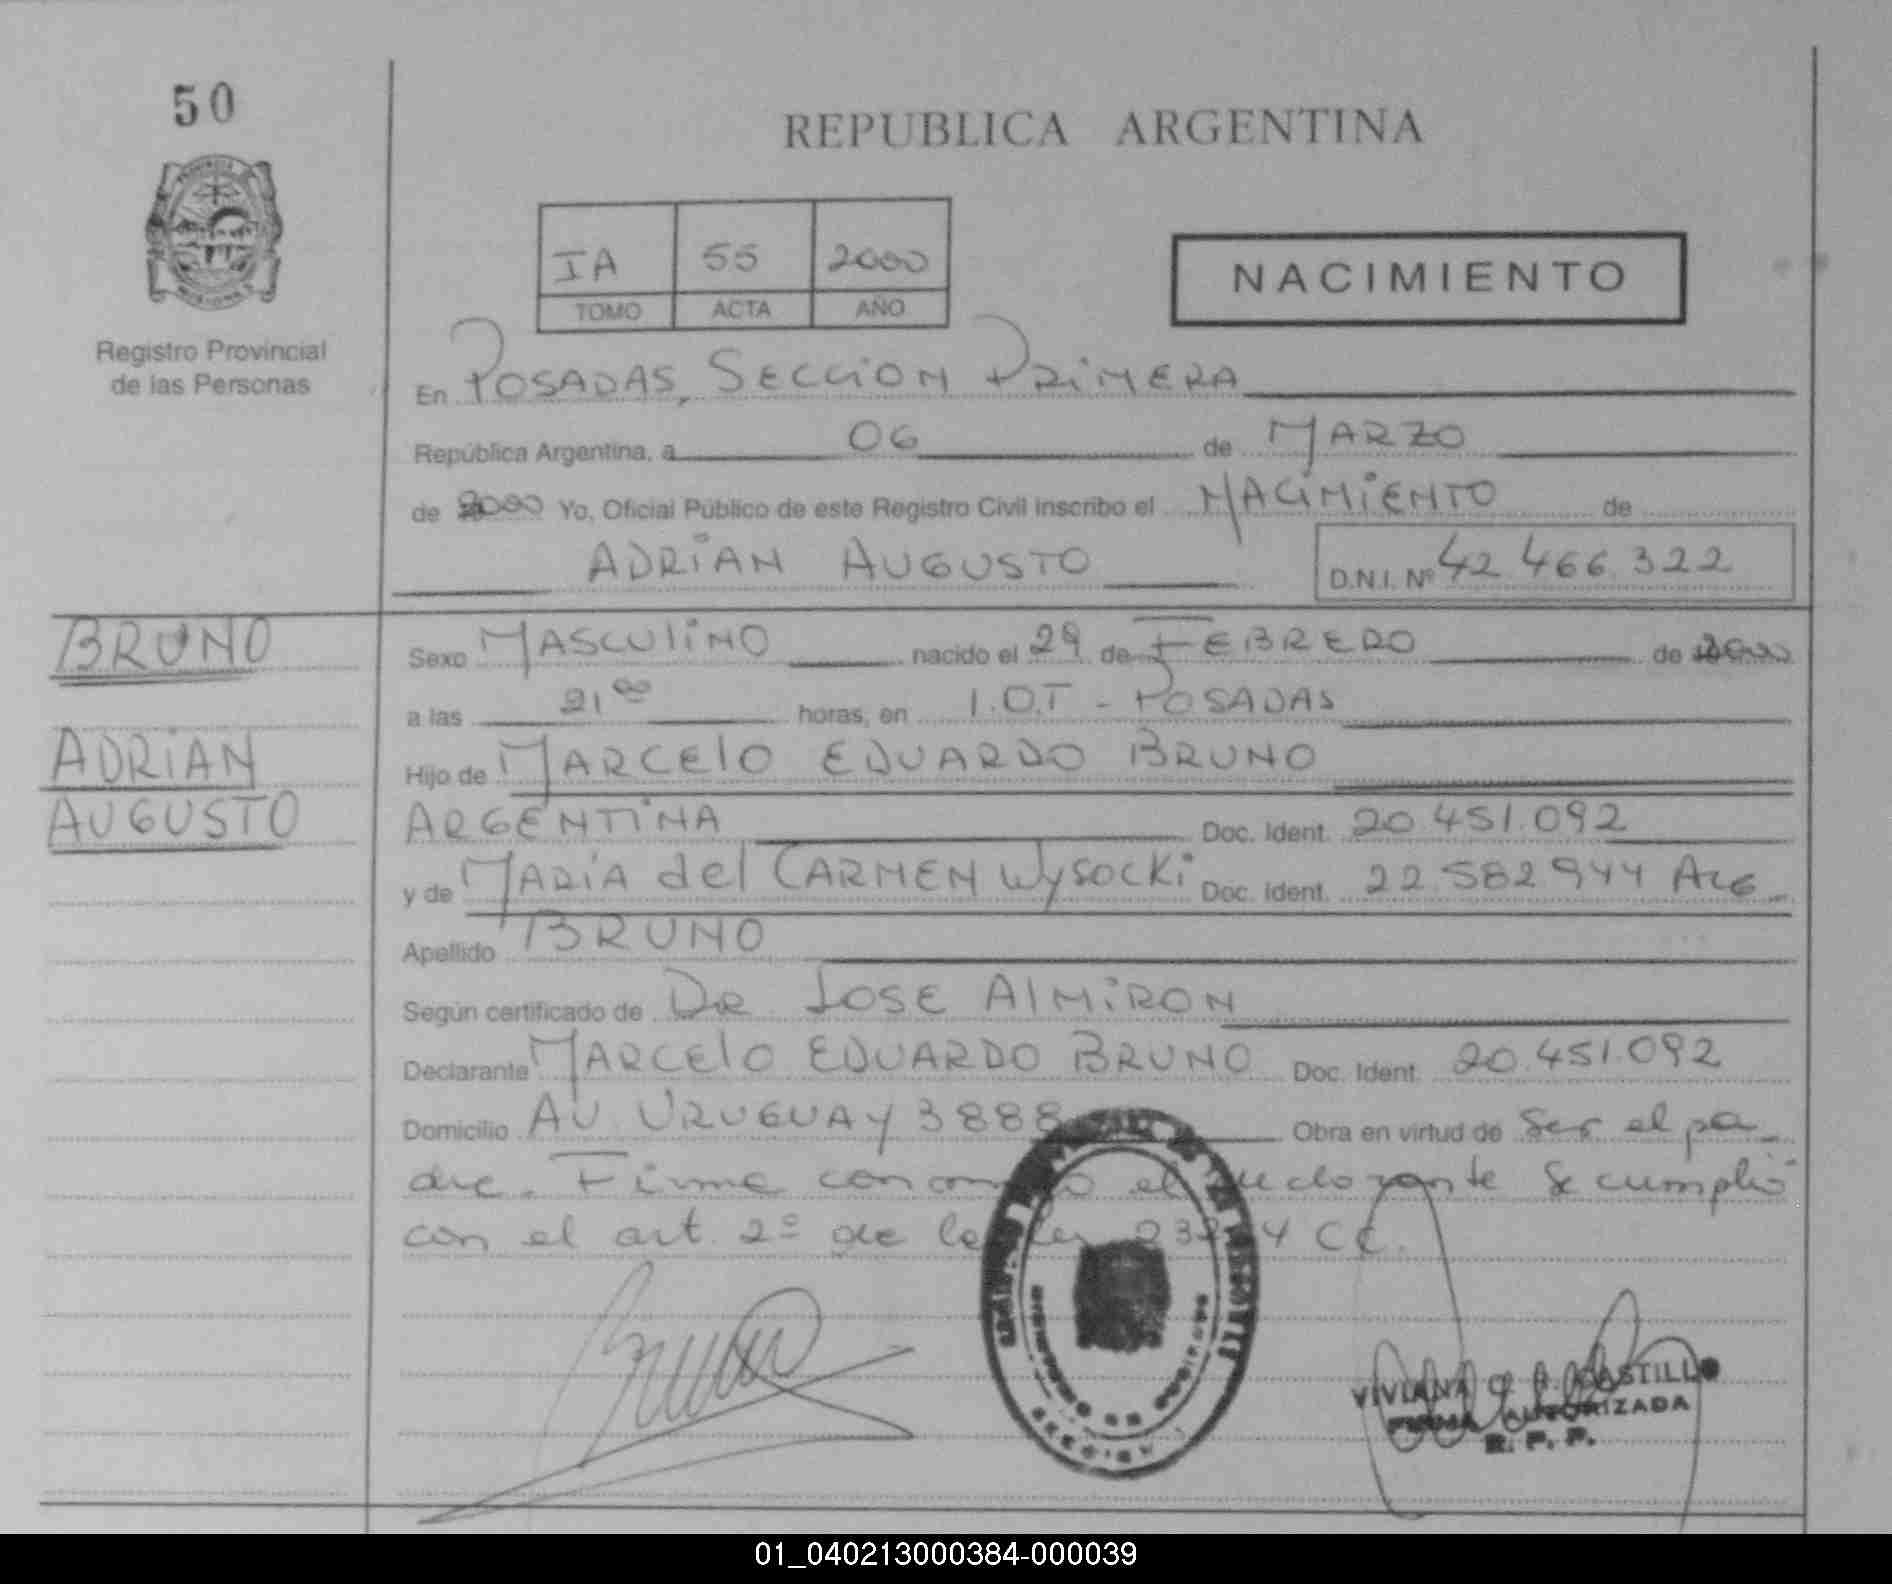 50
REPUBLICA ARGENTINA
IA 55 2000
TOMO ACTA AÑO
NACIMIENTO
Registro Provincial
de las Personas
En POSADAS, SECCION PRIMERA
República Argentina, a 06 de MARZO
de 2000 Yo, Oficial Público de este Registro Civil inscribo el NACIMIENTO de
ADRIAN AUGUSTO D.N.I. Nº 42.466.322
BRUNO
ADRIAN
AUGUSTO
Sexo MASCULINO nacido el 29 de FEBRERO de 2000
a las 21 00 horas, en I.O.T - POSADAS
Hijo de MARCELO EDUARDO BRUNO
ARGENTINA Doc. Ident. 20.451.092
y de MARIA del CARMEN WYSOCKI Doc. Ident. 22.582.944 ARG
Apellido BRUNO
Según certificado de DR JOSE ALMIRON
Declarante MARCELO EDUARDO BRUNO Doc. Ident. 20.451.092
Domicilio AV. URUGUAY 3888 Obra en virtud de ser el pa
dre. Firma el Se cumplió
con el art. 2º de la Ley CC.
Bruno
VIVIANA CASTILLO
FIRMA AUTORIZADA
R. P. P.
01_040213000384-000039